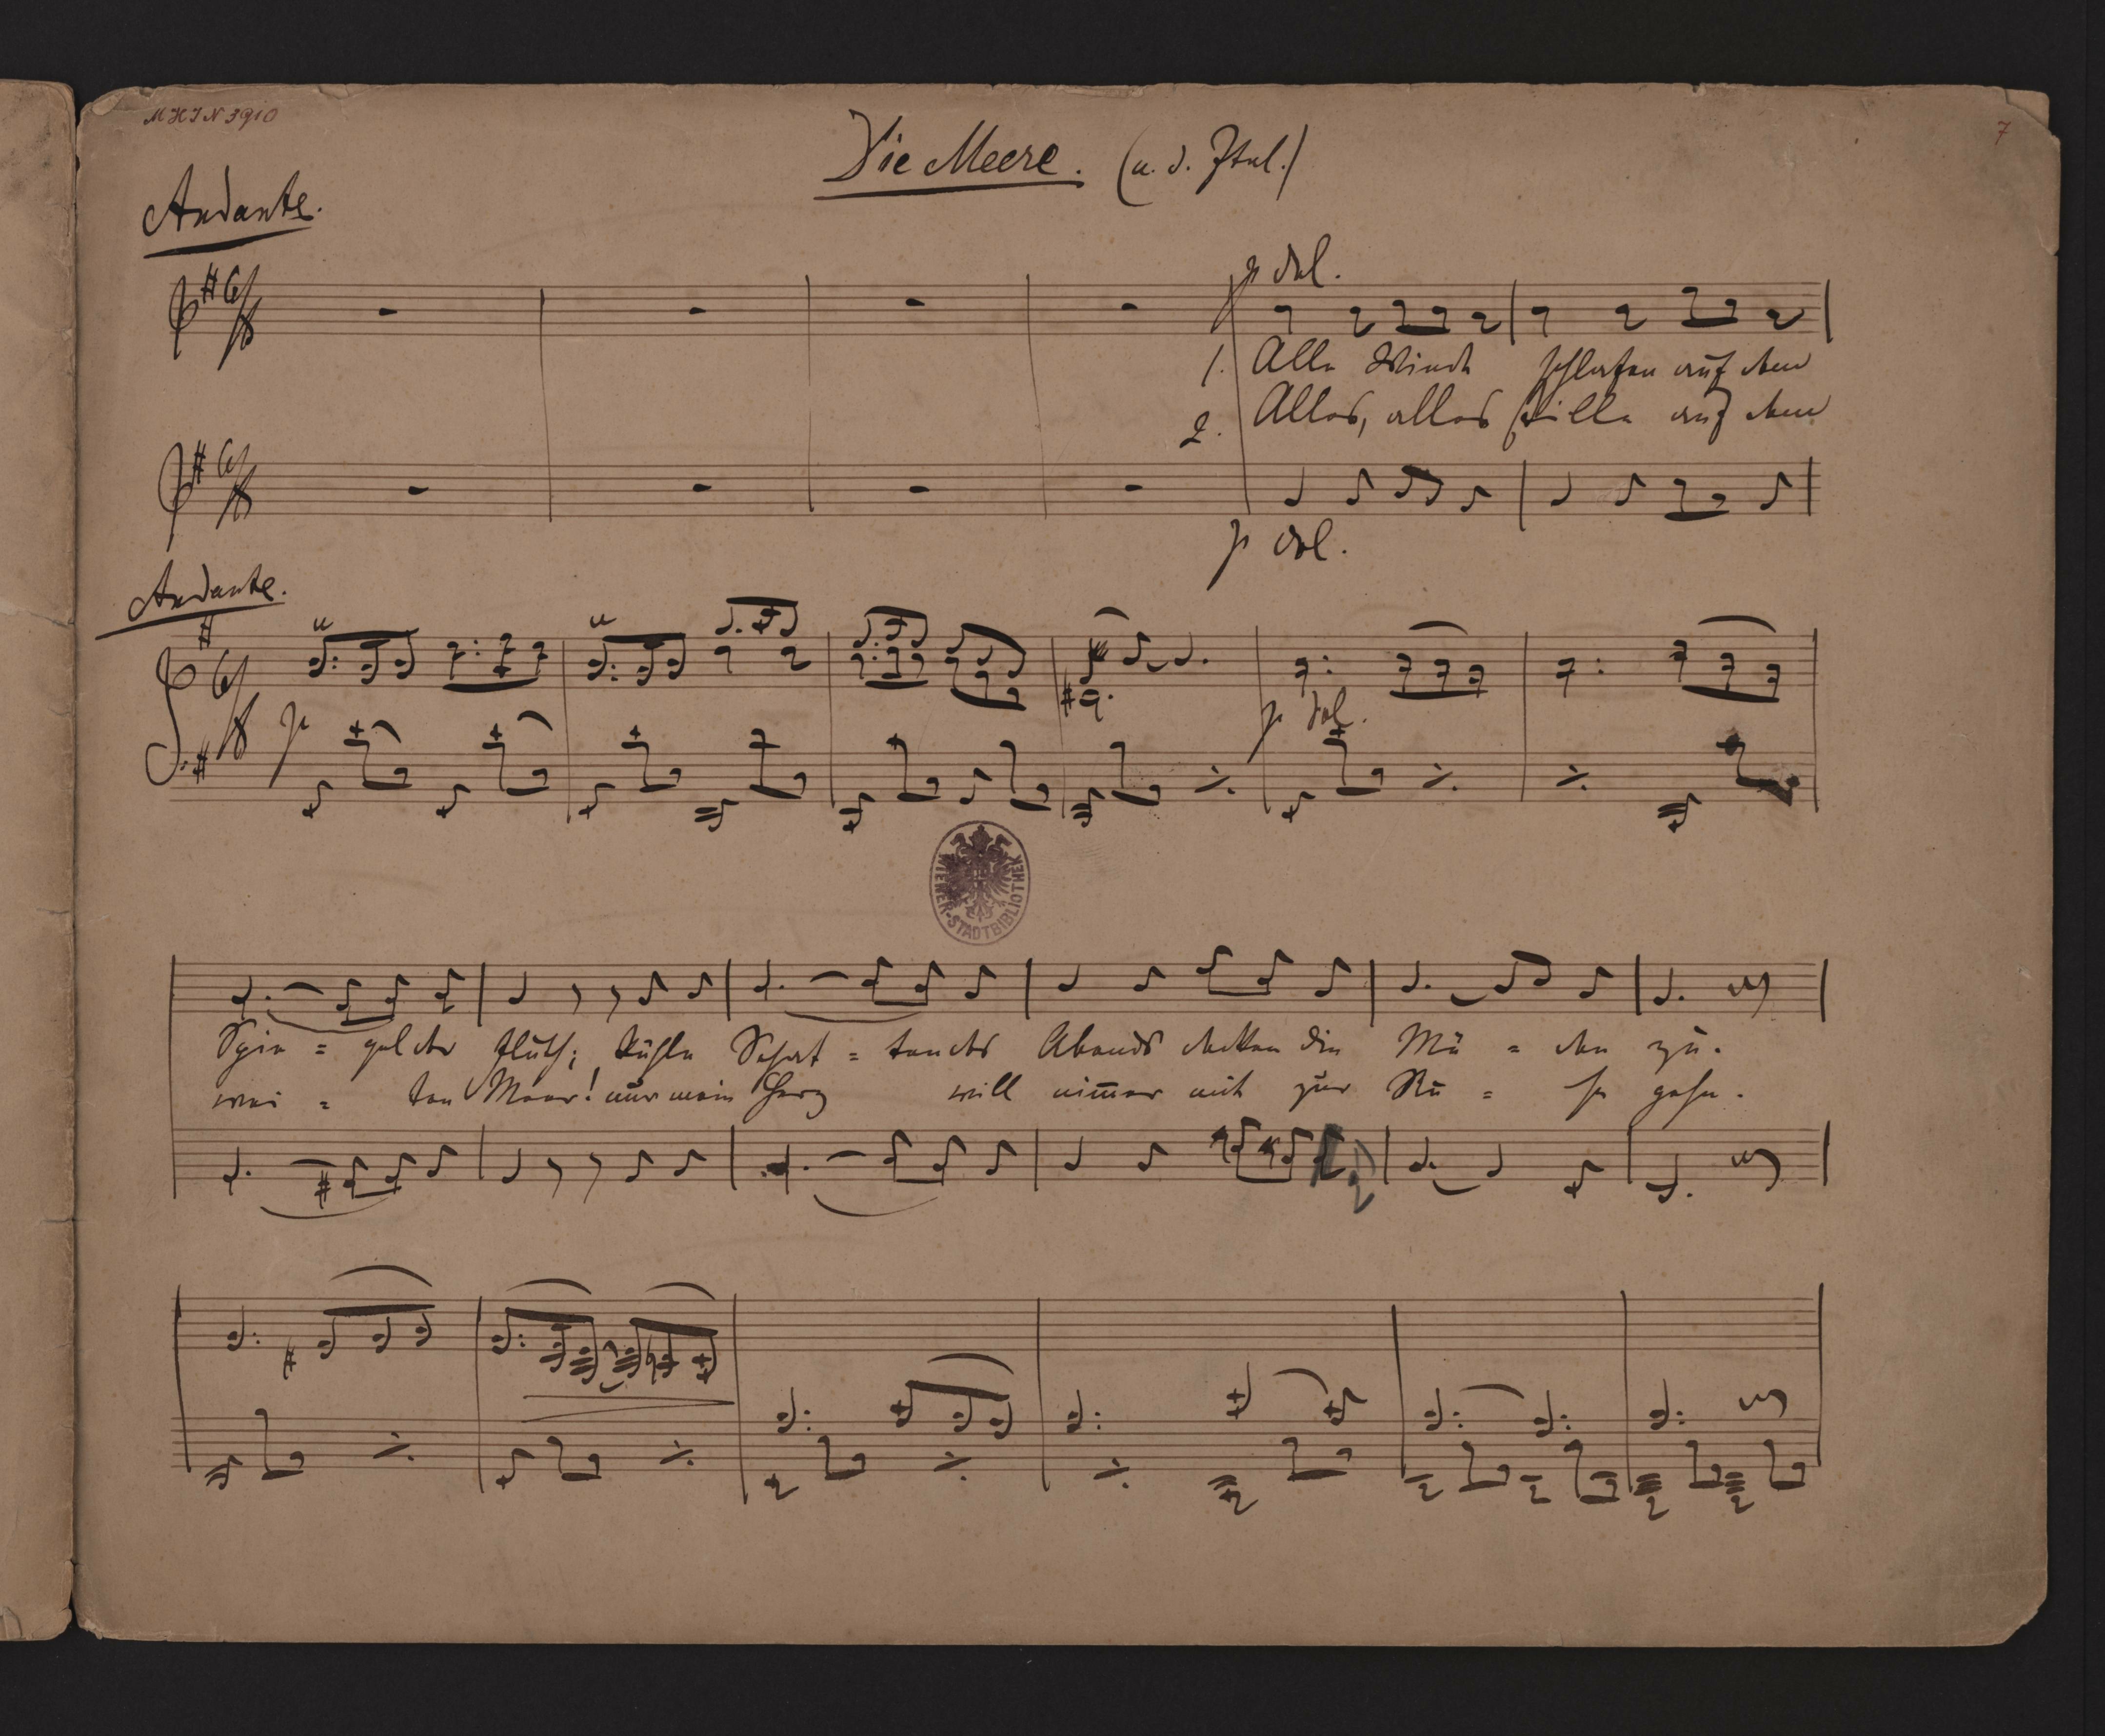 MHIN 3910
7
Die Meere. (a. d. Ital.)
Andante.
p dol.
1. Alle Winde schlafen auf dem
2. Alles, alles stille auf dem
p dol.
Andante.
p
p dol.
WIENER-STADTBIBLIOTHEK
Spie = gel der Fluth; kühle Schat = ten des Abends decken die Mü = den zu.
wei = ten Meer! nur mein Herz will nimmer mit zur Ru = he gehn.